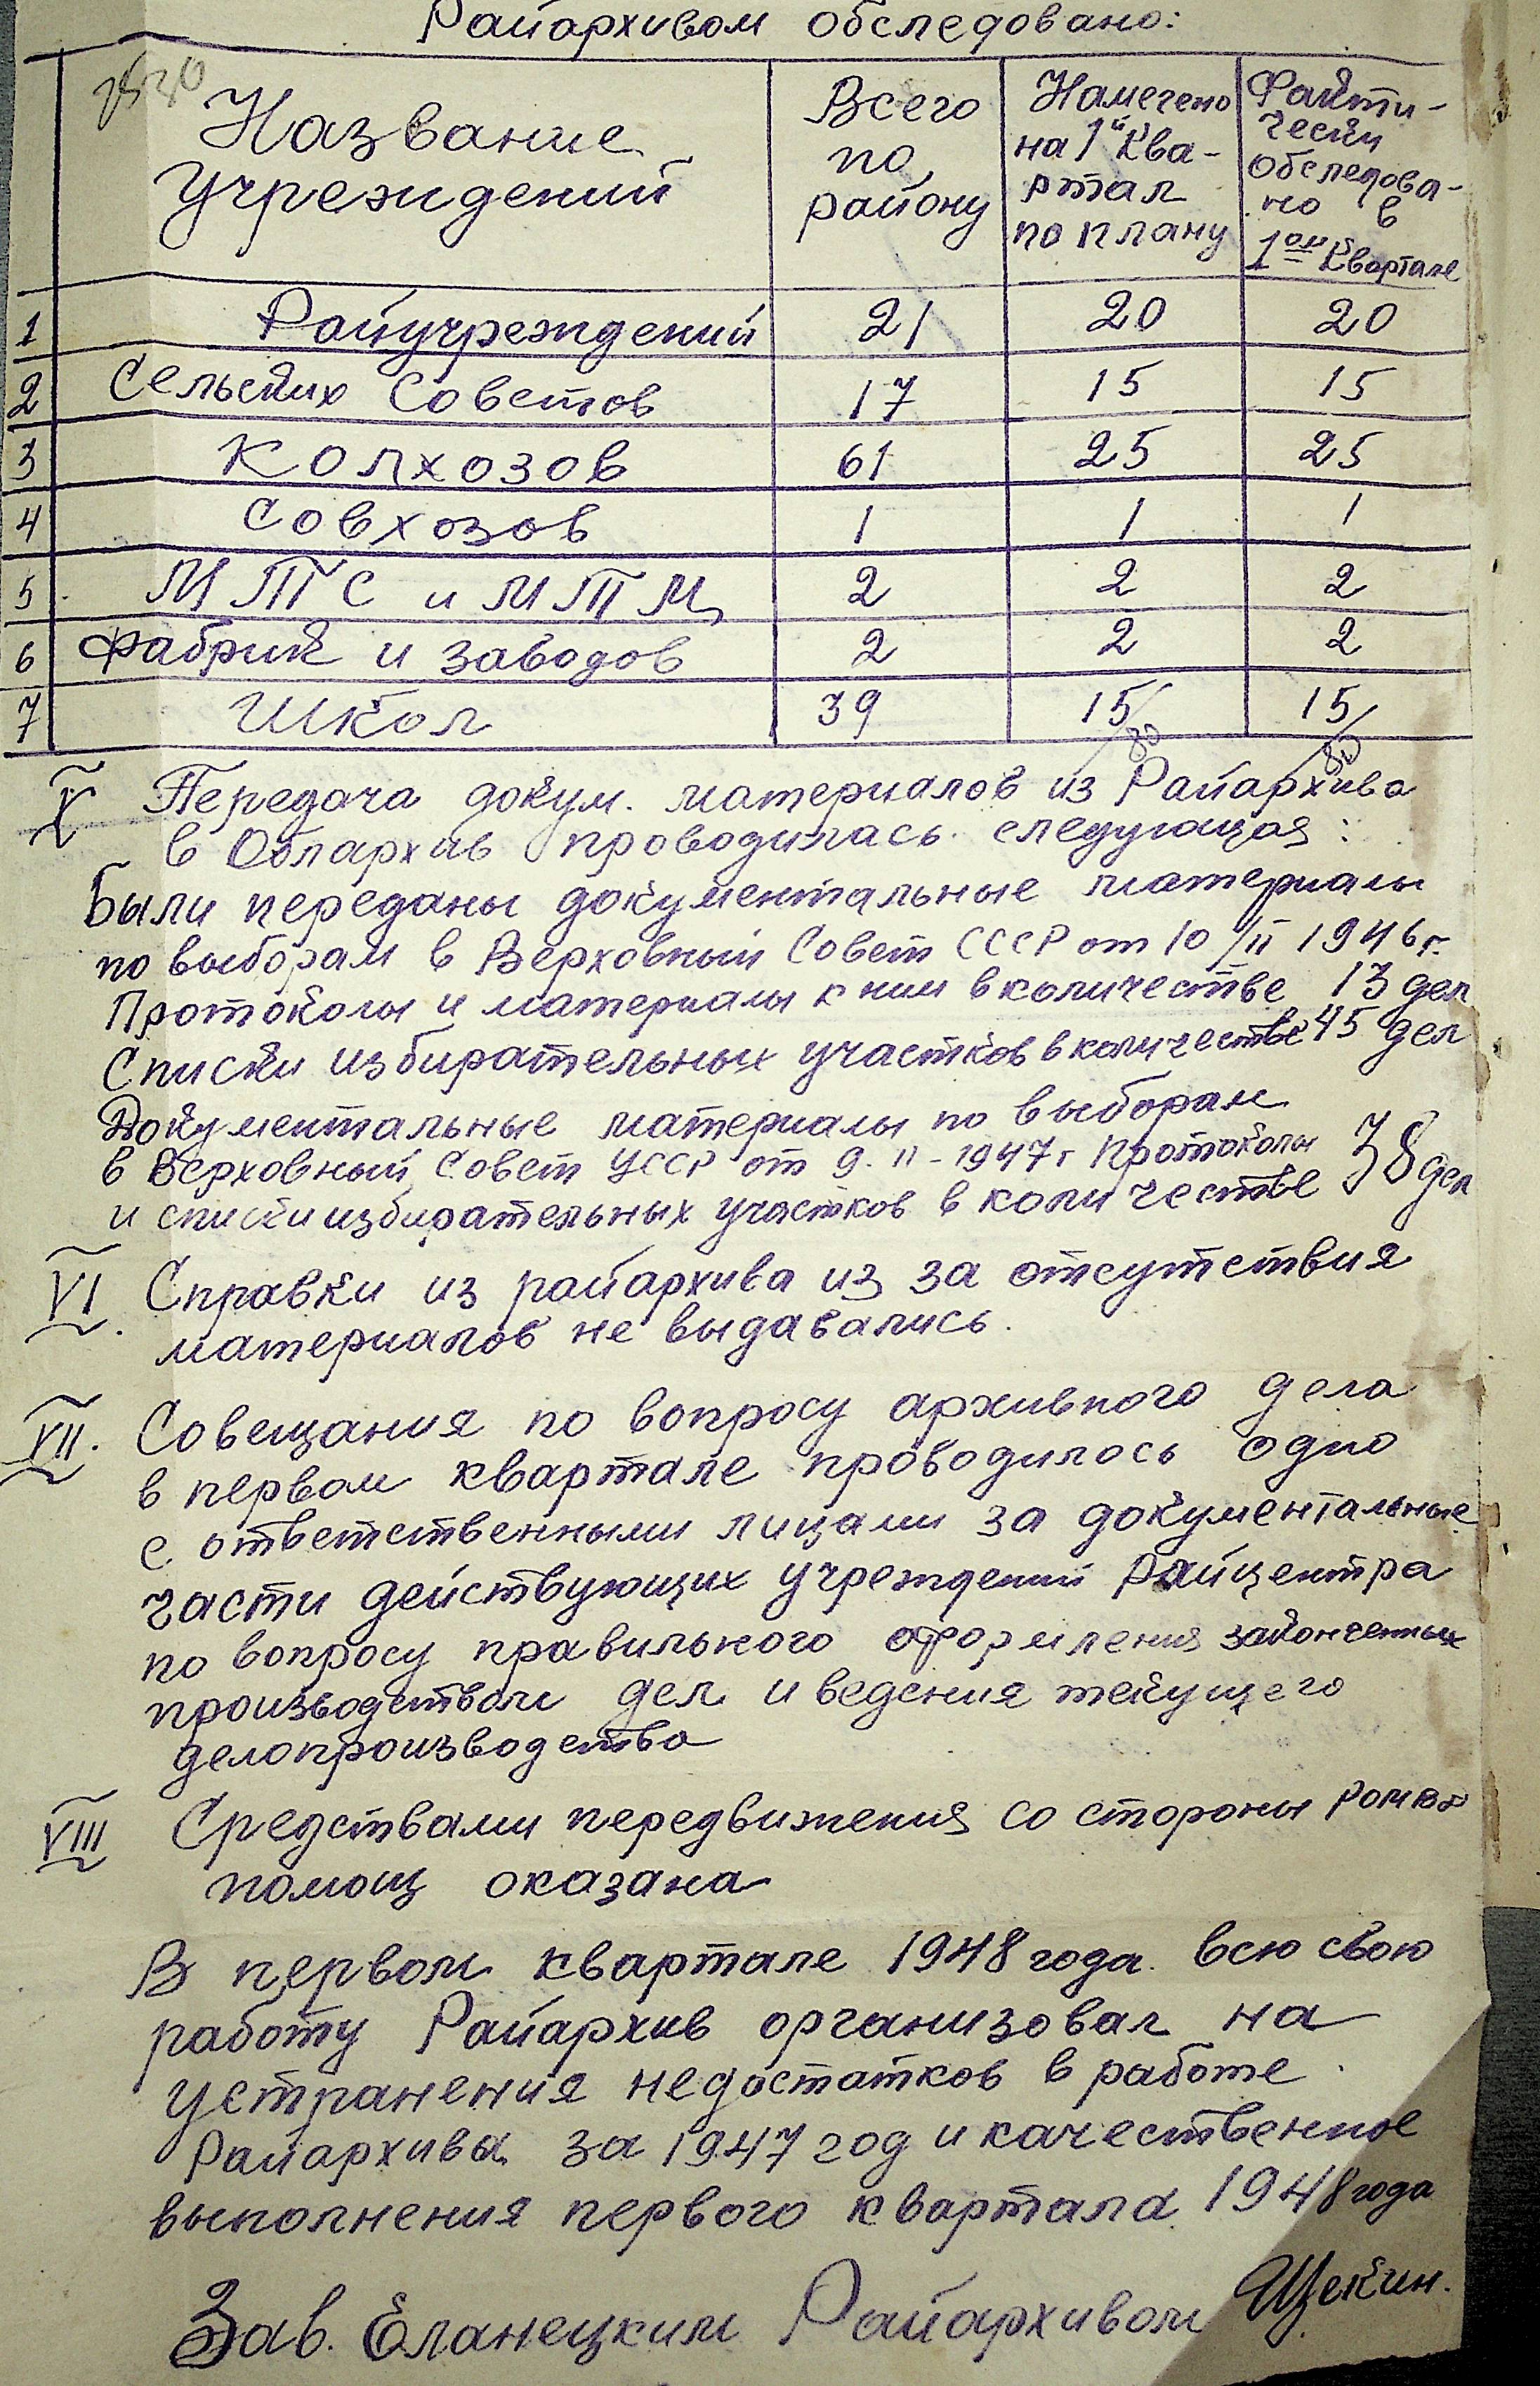 Райархивом обследовано:
Название учреждений | Всего по району | Намечено на 1й Ква-ртал по плану | Факти-чески обследова-но в 1ом Квартале
1 Райучреждений 21 20 20
2 Сельских Советов 17 15 15
3 Колхозов 61 25 25
4 Совхозов 1 1 1
5 МТС и МТМ 2 2 2
6 Фабрик и заводов 2 2 2
7 Школ 39 15/80 15/80
V Передача докум. материалов из Райархива
в Облархив проводилась следующая:
Были переданы документальные материалы
по выборам в Верховный Совет СССР от 10/II 1946 г.
Протоколы и материалы к ним в количестве 13 дел
Списки избирательных участков в количестве 45 дел
Документальные материалы по выборам
в Верховный Совет УССР от 9. II - 1947 г Протоколы
и списки избирательных участков в количестве 38 дел
VI Справки из райархива из за отсутствия
материалов не выдавались.
VII. Совещания по вопросу архивного дела
в первом квартале проводилось одно
с ответственными лицами за документальные
части действующих учреждений Райцентра
по вопросу правильного оформления законченных
производством дел и ведения текущего
делопроизводства
VIII Средствами передвижения со стороны РОМВД
помощ оказана
В первом квартале 1948 года всю свою
работу Райархив организовал на
устранения недостатков в работе
Райархива за 1947 год и качественное
выполнения первого квартала 1948 года
Зав. Еланецким Райархивом Щекин.